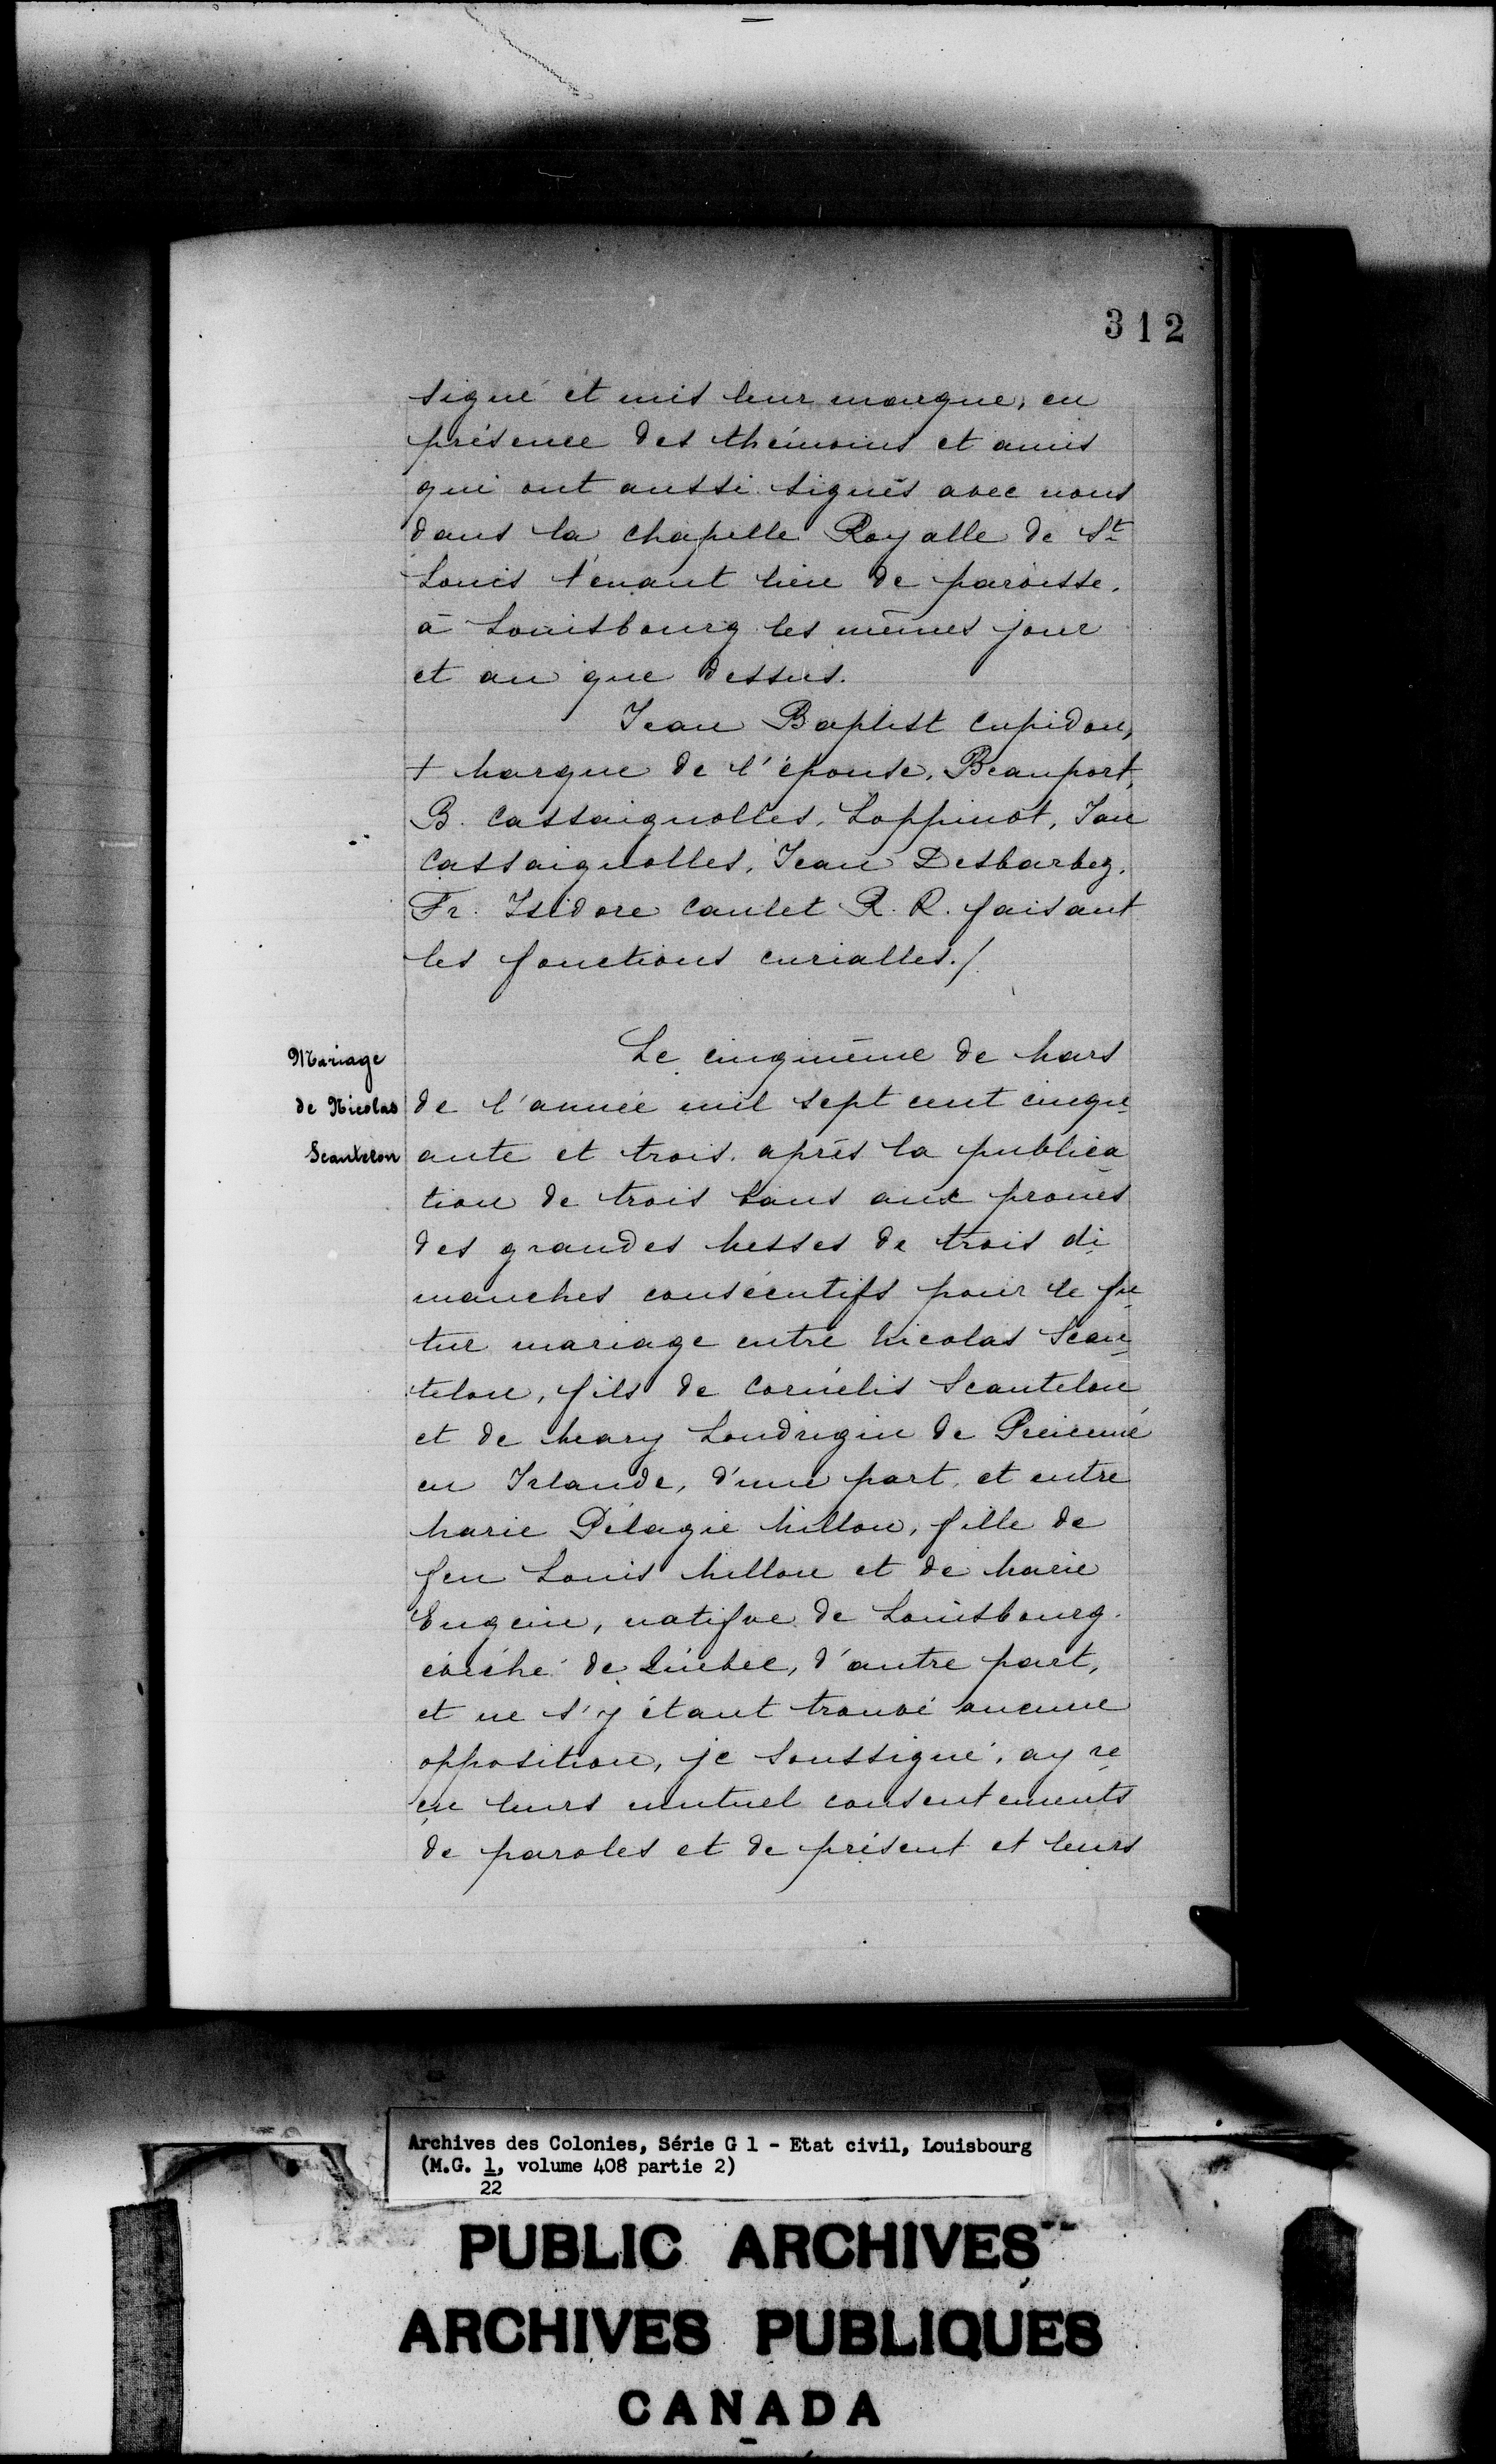 312
signé et mis leur marque, en
présence des thémoins et amis
qui ont aussi signés avec nous
dans la chapelle Royalle de St
Louis tenant lieu de paroisse.
à Louisbourg les mêmes jour
et an que dessus.
Jean Baptist Cupidon,
+ Marque de l'épouse, Beauport,
B. Cassaignolles, Loppinot, Jan
Cassaignolles, Jean Desbarbez.
Fr. Isidore Caulet R. R. faisant
les fonctions curialles./.
Mariage
de Nicolas
Scantelon
Le cinquième de Mars
de l'année mil sept cent cinqu
ante et trois. après la publica
tion de trois bans aux prones
des grandes Messes de trois di
manches consécutifs pour le fu
tur mariage entre Nicolas Scan
telon, fils de Cornélis Scantelon
et de Meary Londrigin de
en Irlande, d'une part, et entre
Marie Pélagie Millou, fille de
feu Louis Millou et de Marie
Engein, natifve de Louisbourg
évêché de Québec, d'autre part,
et ne s'y étant trouvé aucune
opposition, je soussigné, ay re
çu leurs mutuel consentements
de paroles et de présent et leurs
Archives des Colonies, Série G 1 - Etat civil, Louisbourg
(M.G. 1, volume 408 partie 2)
22
PUBLIC ARCHIVES
ARCHIVES PUBLIQUES
CANADA